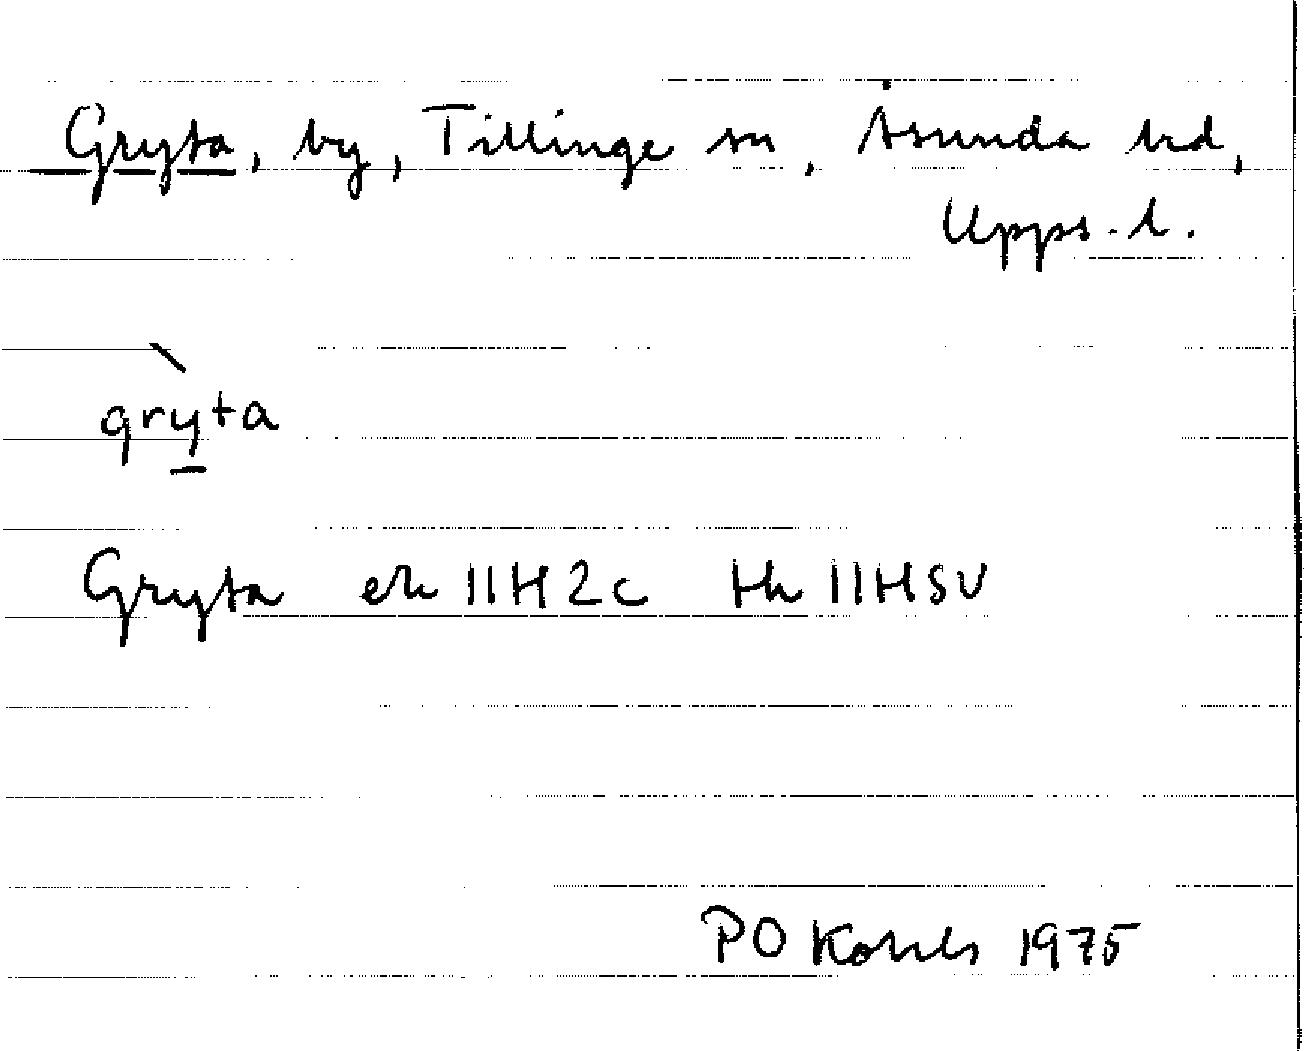 Gryta, by, Tillinge sn, Åsunda hd,
Upps. l.
gryta
Gryta ek 11H2c tk 11HSV
PO 1975